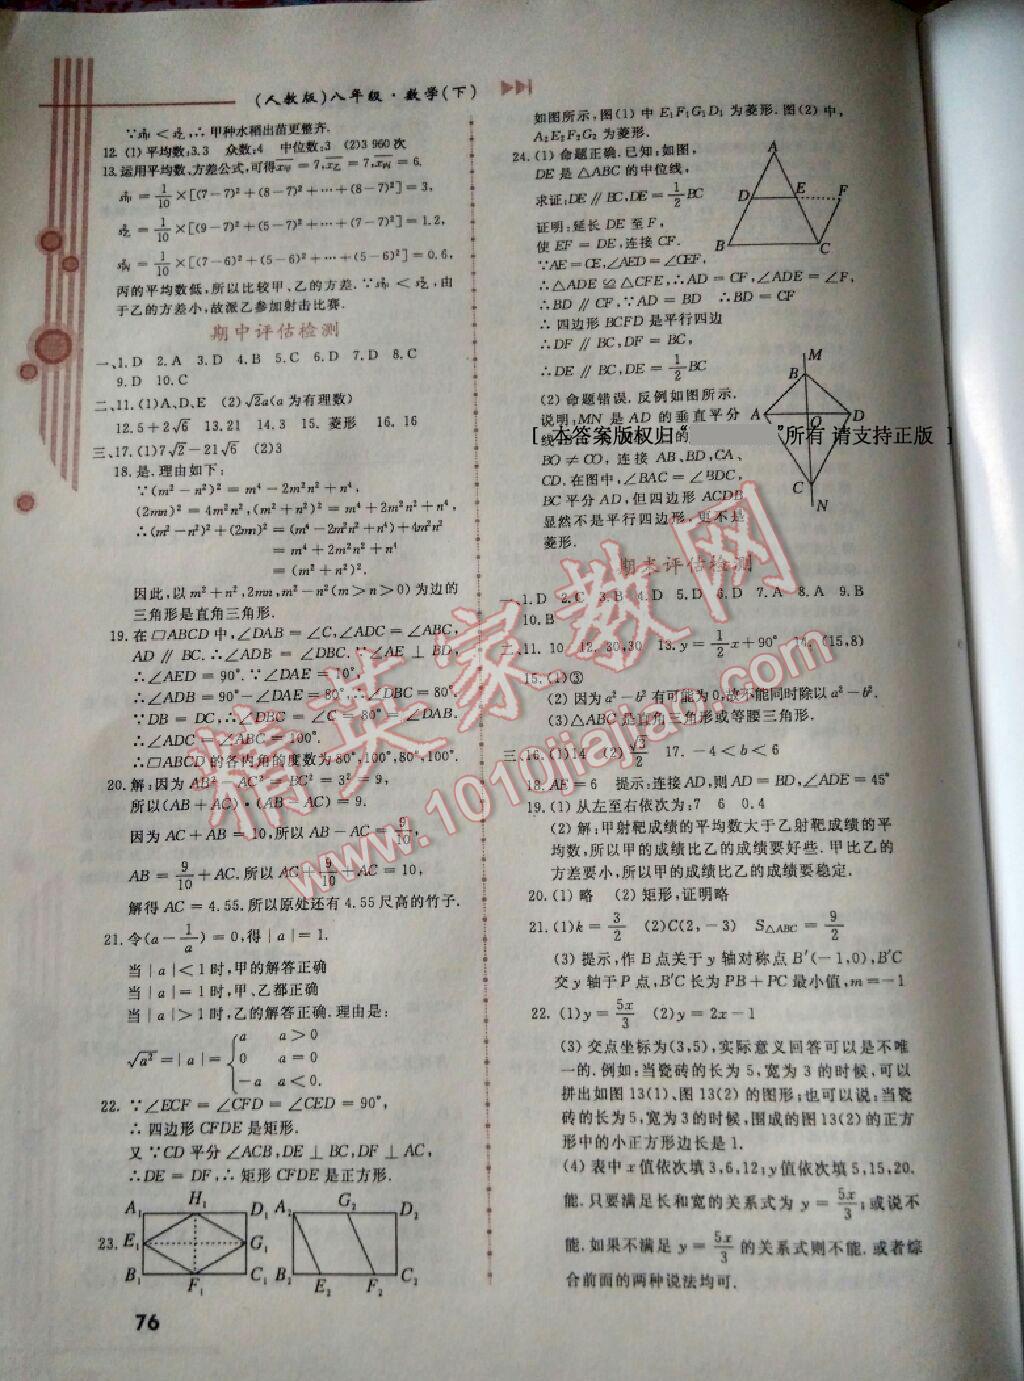 (人教版)八年级·数学(下)
∵s²丙＜s²乙,∴甲种水稻出苗更整齐.
12. (1)平均数:3.3 众数:4 中位数:3 (2)3 960次
13. 运用平均数、方差公式,可得x甲=7,x乙=7,x丙=6.
s²甲=1/10×[(7-7)²+(8-7)²+…+(8-7)²]=3,
s²乙=1/10×[(9-7)²+(5-7)²+…+(7-7)²]=1.2,
s²丙=1/10×[(7-6)²+(5-6)²+…+(5-6)²]=0.6,
丙的平均数低,所以比较甲、乙的方差.
于乙的方差小,故派乙参加射击比赛.
期中评估检测
一、1. D 2. A 3. D 4. B 5. C 6. D 7. D 8. C
9. D 10. C
二、11. (1)A、D、E (2)√2a(a为有理数)
12. 5+2√6 13. 21 14. 3 15. 菱形 16. 16
三、17. (1)7√2-21√6 (2)3
18. 是.理由如下:
∵(m²-n²)²=m⁴-2m²n²+n⁴,
(2mn)²=4m²n²,(m²+n²)²=m⁴+2m²n²+n⁴,
∴(m²-n²)²+(2mn)²=(m⁴-2m²n²+n⁴)+4m²n²
=m⁴+2m²n²+n⁴
=(m²+n²)².
因此,以m²+n²,2mn,m²-n²(m>n>0)为边的
三角形是直角三角形.
19. 在□ABCD中,∠DAB=∠C,∠ADC=∠ABC,
AD∥BC.∴∠ADB=∠DBC.∵∠AE⊥BD,
∴∠AED=90°.∵∠DAE=10°,
∴∠ADB=90°-∠DAE=80°,∴∠DBC=80°.
∵DB=DC,∴∠DBC=∠C=80°=∠DAB.
∴∠ADC=∠ABC=100°.
∴□ABCD的各内角的度数为80°,100°,80°,100°.
20. 解:因为AB²-AC²=BC²=3²=9,
所以(AB+AC)·(AB-AC)=9.
因为AC+AB=10,所以AB-AC=9/10,
AB=9/10+AC.所以AC+9/10+AC=10,
解得AC=4.55.所以原处还有4.55尺高的竹子.
21. 令(a-1/a)=0,得|a|=1.
当|a|<1时,甲的解答正确
当|a|=1时,甲、乙都正确
当|a|>1时,乙的解答正确.理由是:
a a>0
√a²=|a|={0 a=0
-a a<0.
22. ∵∠ECF=∠CFD=∠CED=90°,
∴四边形CFDE是矩形.
又∵CD平分∠ACB,DE⊥BC,DF⊥AC,
∴DE=DF,∴矩形CFDE是正方形.
23.
A₁ H₁ D₁ A₂ G₂ D₂
E₁ G₁
B₁ F₁ C₁ B₂ E₂ F₂ C₂
76
如图所示,图(1)中E₁F₁G₁D₁为菱形.图(2)中,
A₂E₂F₂G₂为菱形.
24. (1)命题正确.已知:如图,
DE是△ABC的中位线,
求证:DE∥BC,DE=1/2BC
证明:延长DE至F,
使EF=DE,连接CF.
∵AE=CE,∠AED=∠CEF,
∴△ADE≌△CFE,∴AD=CF,∠ADE=∠F,
∴BD∥CF,∵AD=BD ∴BD=CF
∴四边形BCFD是平行四边
∴DF∥BC,DF=BC,
∴DE∥BC,DE=1/2BC
A
D E F
B C
(2)命题错误.反例如图所示.
说明:MN是AD的垂直平分
BO≠CO,连接AB、BD、CA、
CD.在图中,∠BAC=∠BDC,
BC平分AD,但四边形ACDB
显然不是平行四边形,更不是
菱形.
M
B
A O D
C
N
[ 本答案版权归“ ”所有 请支持正版 ]
期末评估检测
一、1. D 2. C 3. B 4. D 5. D 6. D 7. A 8. A 9. B
10. B
二、11. 10 12. 30,30 13. y=1/2x+90° 14. (15,8)
15. (1)③
(2)因为a²-b²有可能为0,故不能同时除以a²-b².
(3)△ABC是直角三角形或等腰三角形.
三、16. (1)14 (2)√3/2 17. -4<b<6
18. AE=6 提示:连接AD,则AD=BD,∠ADE=45°
19. (1)从左至右依次为:7 6 0.4
(2)解:甲射靶成绩的平均数大于乙射靶成绩的平
均数,所以甲的成绩比乙的成绩要好些.甲比乙的
方差要小,所以甲的成绩比乙的成绩要稳定.
20. (1)略 (2)矩形,证明略
21. (1)k=3/2 (2)C(2,-3) S△ABC=9/2
(3)提示,作B点关于y轴对称点B′(-1,0),B′C
交y轴于P点,B′C长为PB+PC最小值,m=-1
22. (1)y=5x/3 (2)y=2x-1
(3)交点坐标为(3,5),实际意义回答可以是不唯
一的.例如:当瓷砖的长为5,宽为3的时候,可以
拼出如图13(1)、图13(2)的图形;也可以说:当瓷
砖的长为5,宽为3的时候,围成的图13(2)的正方
形中的小正方形边长是1.
(4)表中x值依次填3,6,12;y值依次填5,15,20.
能.只要满足长和宽的关系式为y=5x/3;或说不
能.如果不满足y=5x/3的关系式则不能.或者综
合前面的两种说法均可.
精英家教网
www.1010jiajiao.com